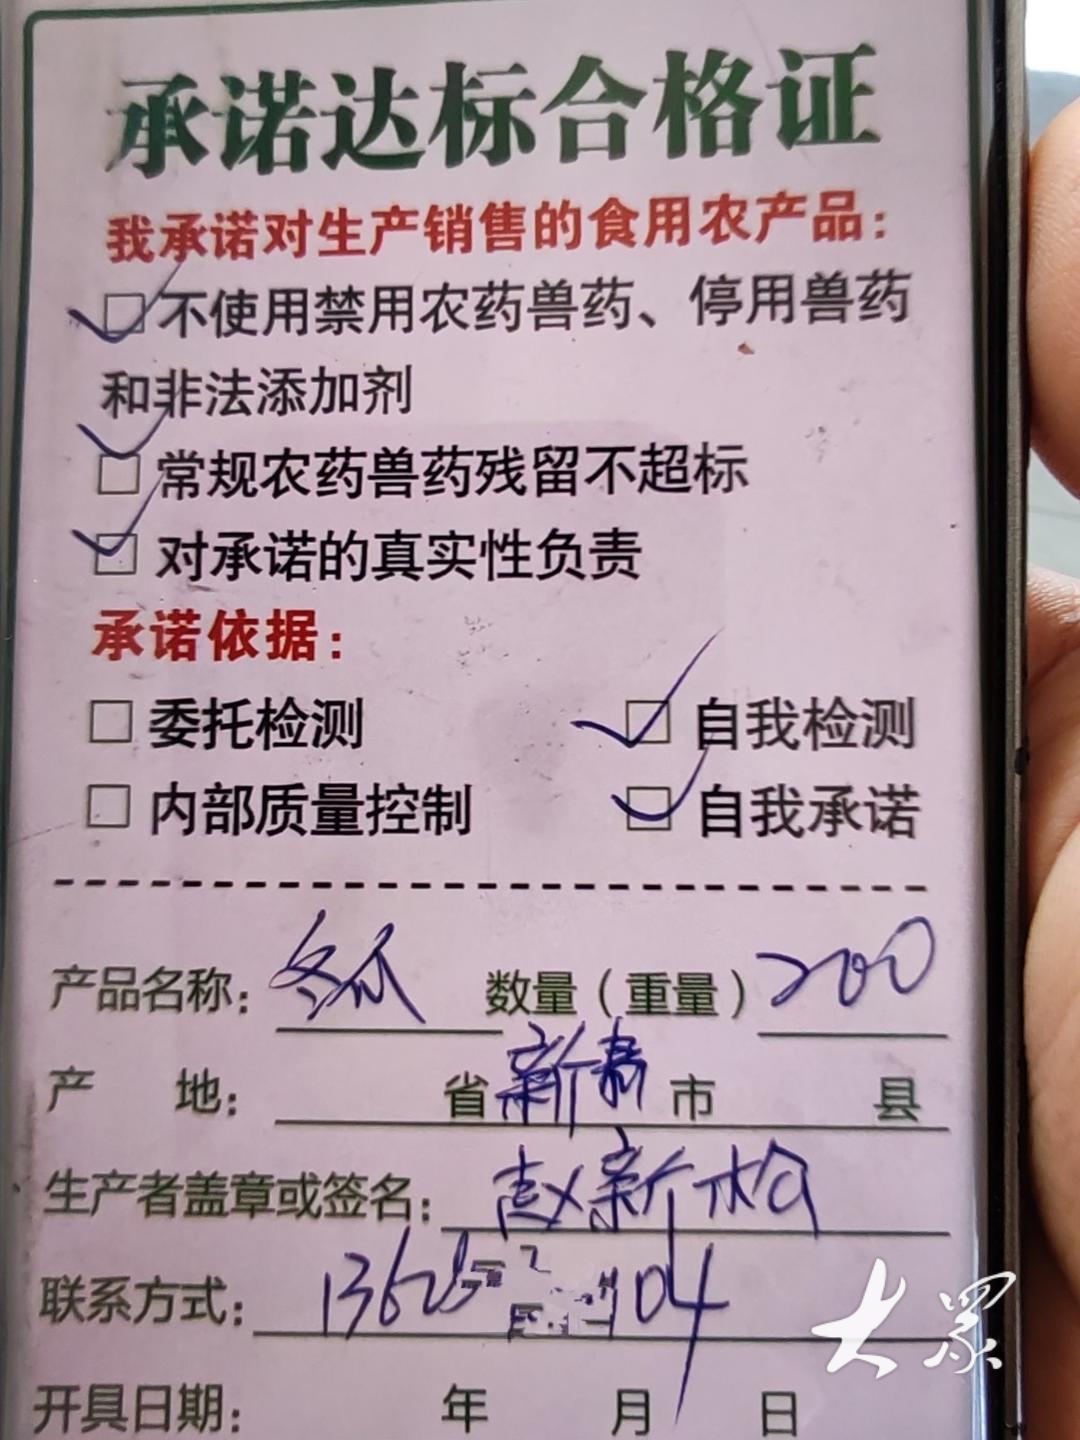 承诺达标合格证
我承诺对生产销售的食用农产品：
□不使用禁用农药兽药、停用兽药
和非法添加剂
□常规农药兽药残留不超标
□对承诺的真实性负责
承诺依据：
□委托检测 □自我检测
□内部质量控制 □自我承诺
产品名称：冬瓜 数量（重量）200
产 地： 省新 市 县
生产者盖章或签名：赵新
联系方式：1362 104
开具日期： 年 月 日
大众